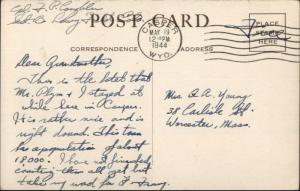 POST CARD
CASPER
MAY 19
12-PM
1944
WYO.
Free
PLACE
STAMP
HERE
CORRESPONDENCE
ADDRESS
Dear Grandmother,
This is the hotel that
Mr. Plym & I stayed at
while here in Casper.
It's rather nice and is
right around. This town
has a population of almost
18,000. I have not finished
counting them all yet but
take my word for it.
Mrs. E. A. Young
38 Carlisle St.
Worcester, Mass.